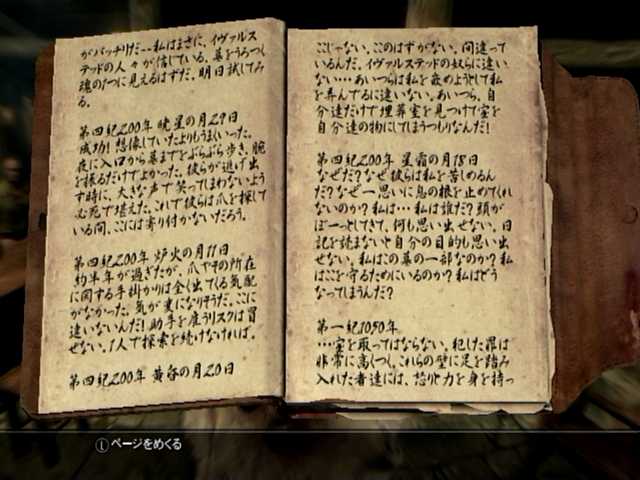 がバッチリだ--私はまさに、イヴァルス
テッドの人々が信じている、墓をうろつく
魂の1つに見えるはずだ。明日試してみ
る。
第四紀200年 暁星の月29日
成功! 想像していたよりもうまくいった。
夜に入口から墓までをぶらぶら歩き、腕
を振るだけでよかった。彼らが逃げ出
す時に、大きな声で笑ってしまわないよう
必死で堪えた。これで彼らは爪を探して
いる間、ここには寄り付かないだろう。
第四紀200年 炉火の月11日
約半年が過ぎたが、爪やその所在
に関する手掛かりは全く出てくる気配
がなかった。気が変になりそうだ。ここに
違いないんだ! 助手を雇うリスクは冒
せない。1人で探索を続けなければ。
第四紀200年 黄昏の月20日
ここじゃない。ここのはずがない。間違って
いるんだ。イヴァルステッドの奴らに違い
ない…あいつらは私を嵌めようとして私
を弄んでるに違いない。あいつら、自
分達だけで埋葬室を見つけて宝を
自分達の物にしてしまうつもりなんだ!
第四紀200年 星霜の月18日
なぜだ? なぜ彼らは私を苦しめるん
だ? なぜ一思いに息の根を止めてくれ
ないのか? 私は…私は誰だ? 頭が
ぼーっとしてきて、何も思い出せない。日
記を読まないと自分の目的も思い出
せない。私はこの墓の一部なのか? 私
はここを守るためにいるのか? 私はどう
なってしまうんだ?
第一紀1050年
…宝を取ってはならない。犯した罪は
非常に高くつく。これらの壁に足を踏み
入れた者達には、怒りと力を身を持っ
Ⓛ ページをめくる